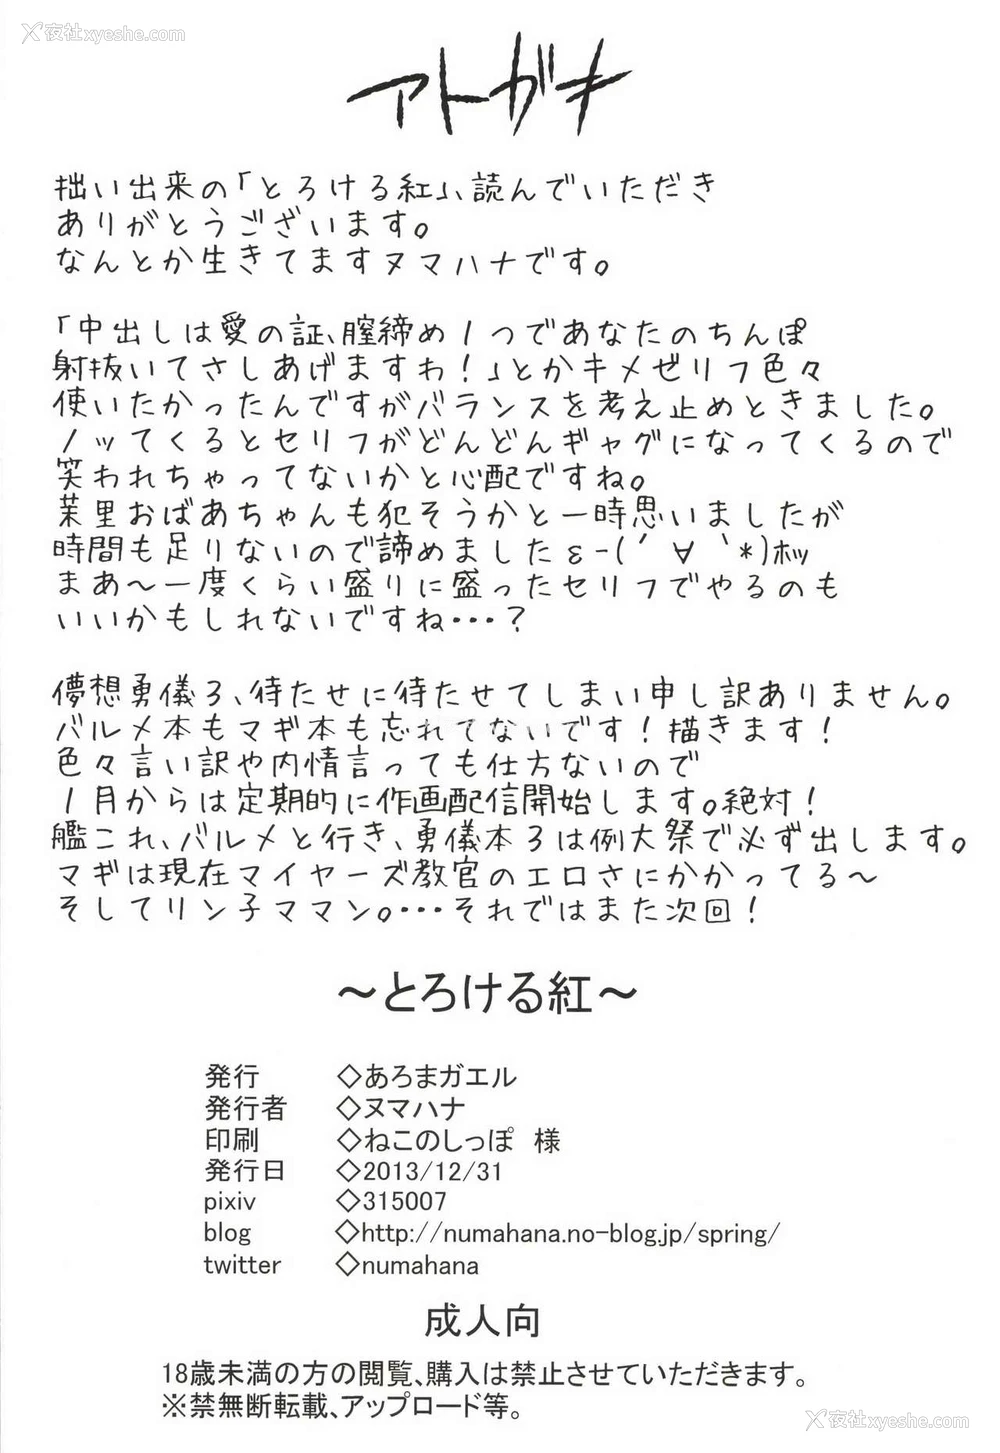 夜社xyeshe.com
アトガキ
拙い出来の「とろける紅」、読んでいただき
ありがとうございます。
なんとか生きてますヌマハナです。
「中出しは愛の証、膣締め1つであなたのちんぽ
射抜いてさしあげますわ!」とかキメゼリフ色々
使いたかったんですがバランスを考え止めときました。
ノッてくるとセリフがどんどんギャグになってくるので
笑われちゃってないかと心配ですね。
茉里おばあちゃんも犯そうかと一時思いましたが
時間も足りないので諦めましたε-(´∀`*)ホッ
まあ〜一度くらい盛りに盛ったセリフでやるのも
いいかもしれないですね・・・?
儚想勇儀3、待たせに待たせてしまい申し訳ありません。
バルメ本もマギ本も忘れてないです!描きます!
色々言い訳や内情言っても仕方ないので
1月からは定期的に作画配信開始します。絶対!
艦これ、バルメと行き、勇儀本3は例大祭で必ず出します。
マギは現在マイヤーズ教官のエロさにかかってる〜
そしてリン子ママン。・・・それではまた次回!
〜とろける紅〜
発行 ◇あろまガエル
発行者 ◇ヌマハナ
印刷 ◇ねこのしっぽ 様
発行日 ◇2013/12/31
pixiv ◇315007
blog ◇http://numahana.no-blog.jp/spring/
twitter ◇numahana
成人向
18歳未満の方の閲覧、購入は禁止させていただきます。
※禁無断転載、アップロード等。
夜社xyeshe.com